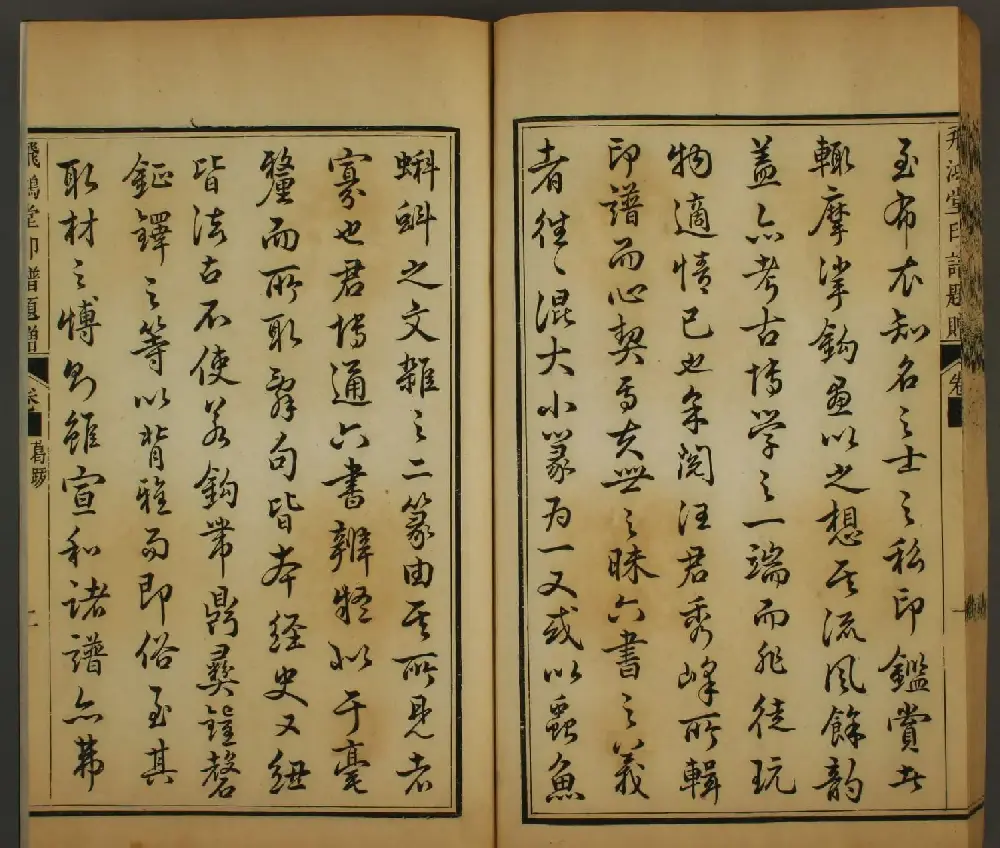 飛鴻堂印譜題贈
卷
至布衣知名之士之私印鑑賞者
輒摩挲鈎畫以之想其流風餘韵
蓋亦考古博學之一端而非徒玩
物適情已也余閱汪君秀峰所輯
印譜而心契焉夫世之昧六書之義
者往〻混大小篆為一又或以蟲魚
蝌蚪之文雜之二篆由其所見者
寡也君博通六書辨疑似于毫
釐而所取辭句皆本經史又紐
皆法古不使若鈎帶鼎彝鐘磬
鉦鐸之等以背雅而即俗至其
取材之博則雖宣和諸譜亦弗
飛鴻堂印譜題贈
葛題